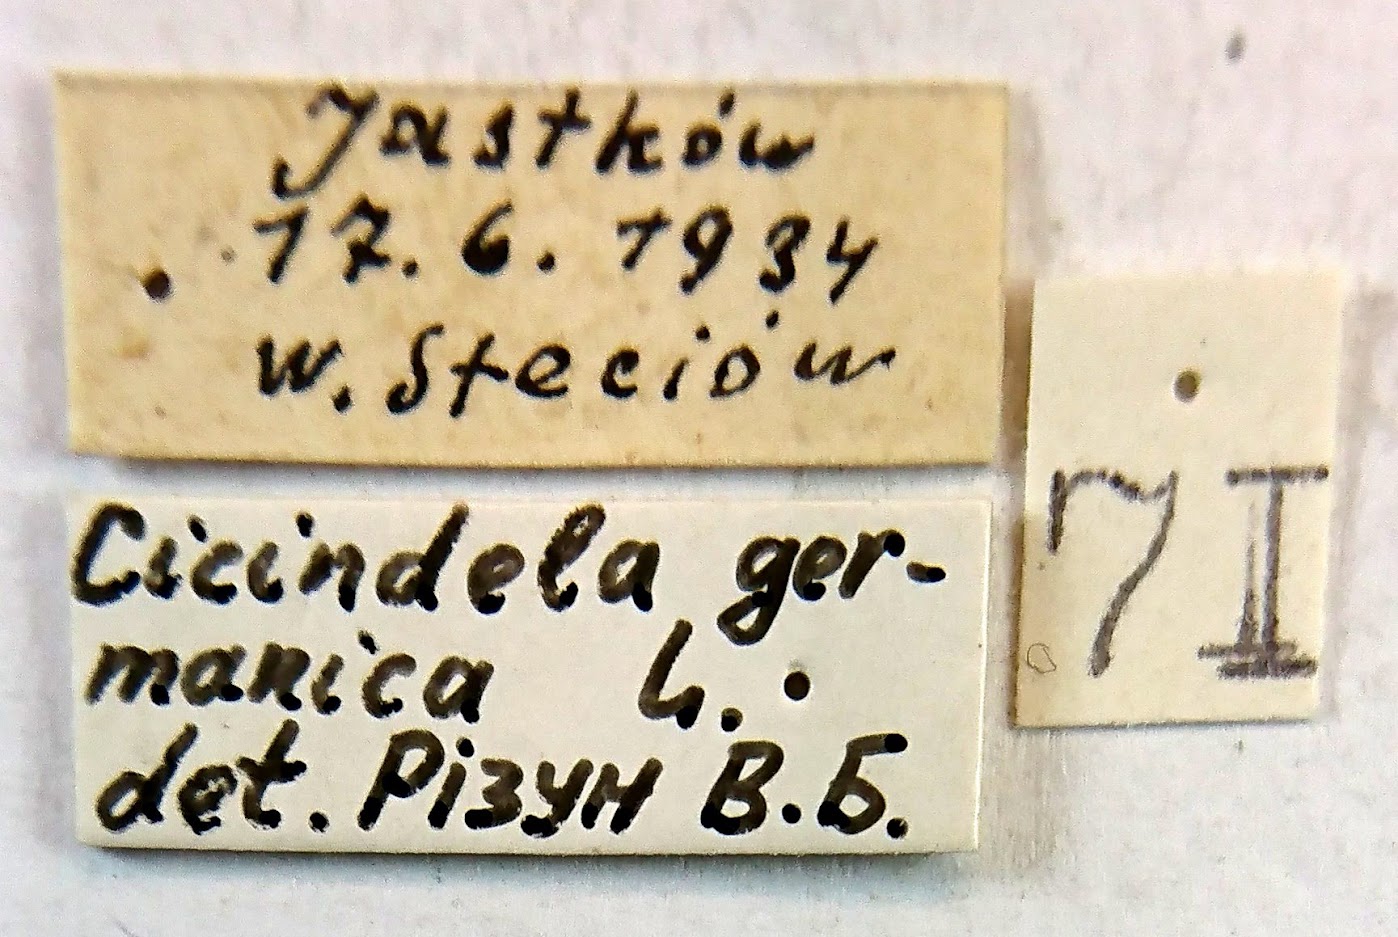 Jastków
17. 6. 1934
W. Steciów
Cicindela ger-
manica L.
det. Різун В.Б.
7 I